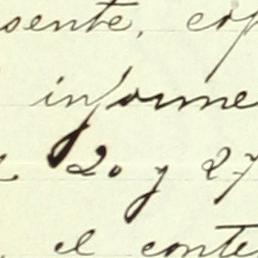 sente, cop
informe
20 y 27
el conte